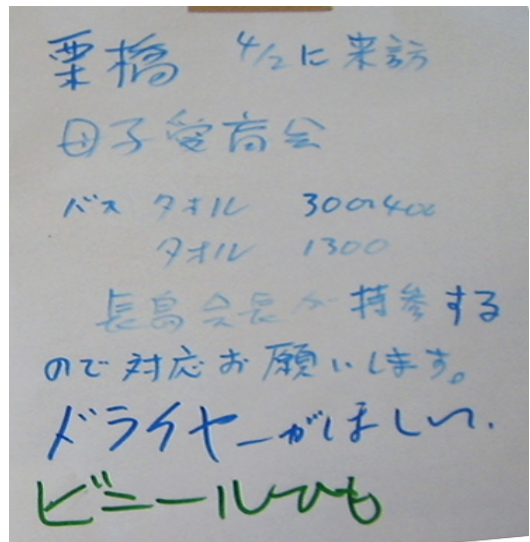 栗橋 4/2に来訪
母子愛育会
バスタオル 300〜400
タオル 1300
長島会長が持参する
ので対応お願いします。
ドライヤーがほしい。
ビニールひも